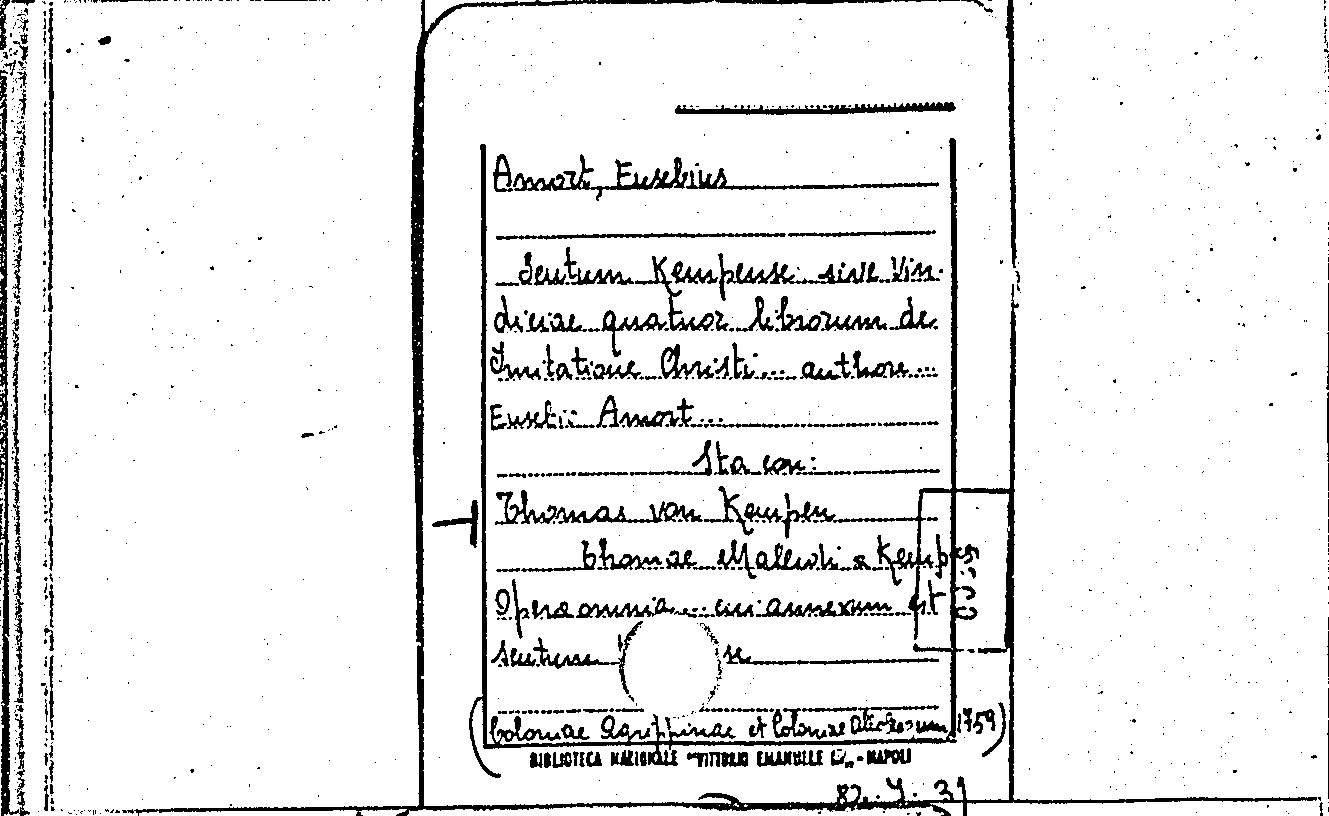 Amort, Eusebius
Scutum Kempense sive Vin-
diciae quatuor librorum de
Imitatione Christi... authore...
Eusebii Amort...
Sta con:
Thomas von Kempen
Thomae Malleoli a Kempis
Opera omnia... cui annexum est
scutum se
(Coloniae Agrippinae et Coloniae 1759)
BIBLIOTECA NAZIONALE "VITTORIO EMANUELE III" - NAPOLI